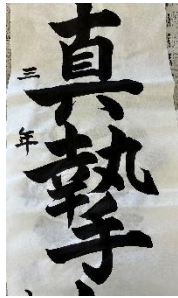 真摯
三年